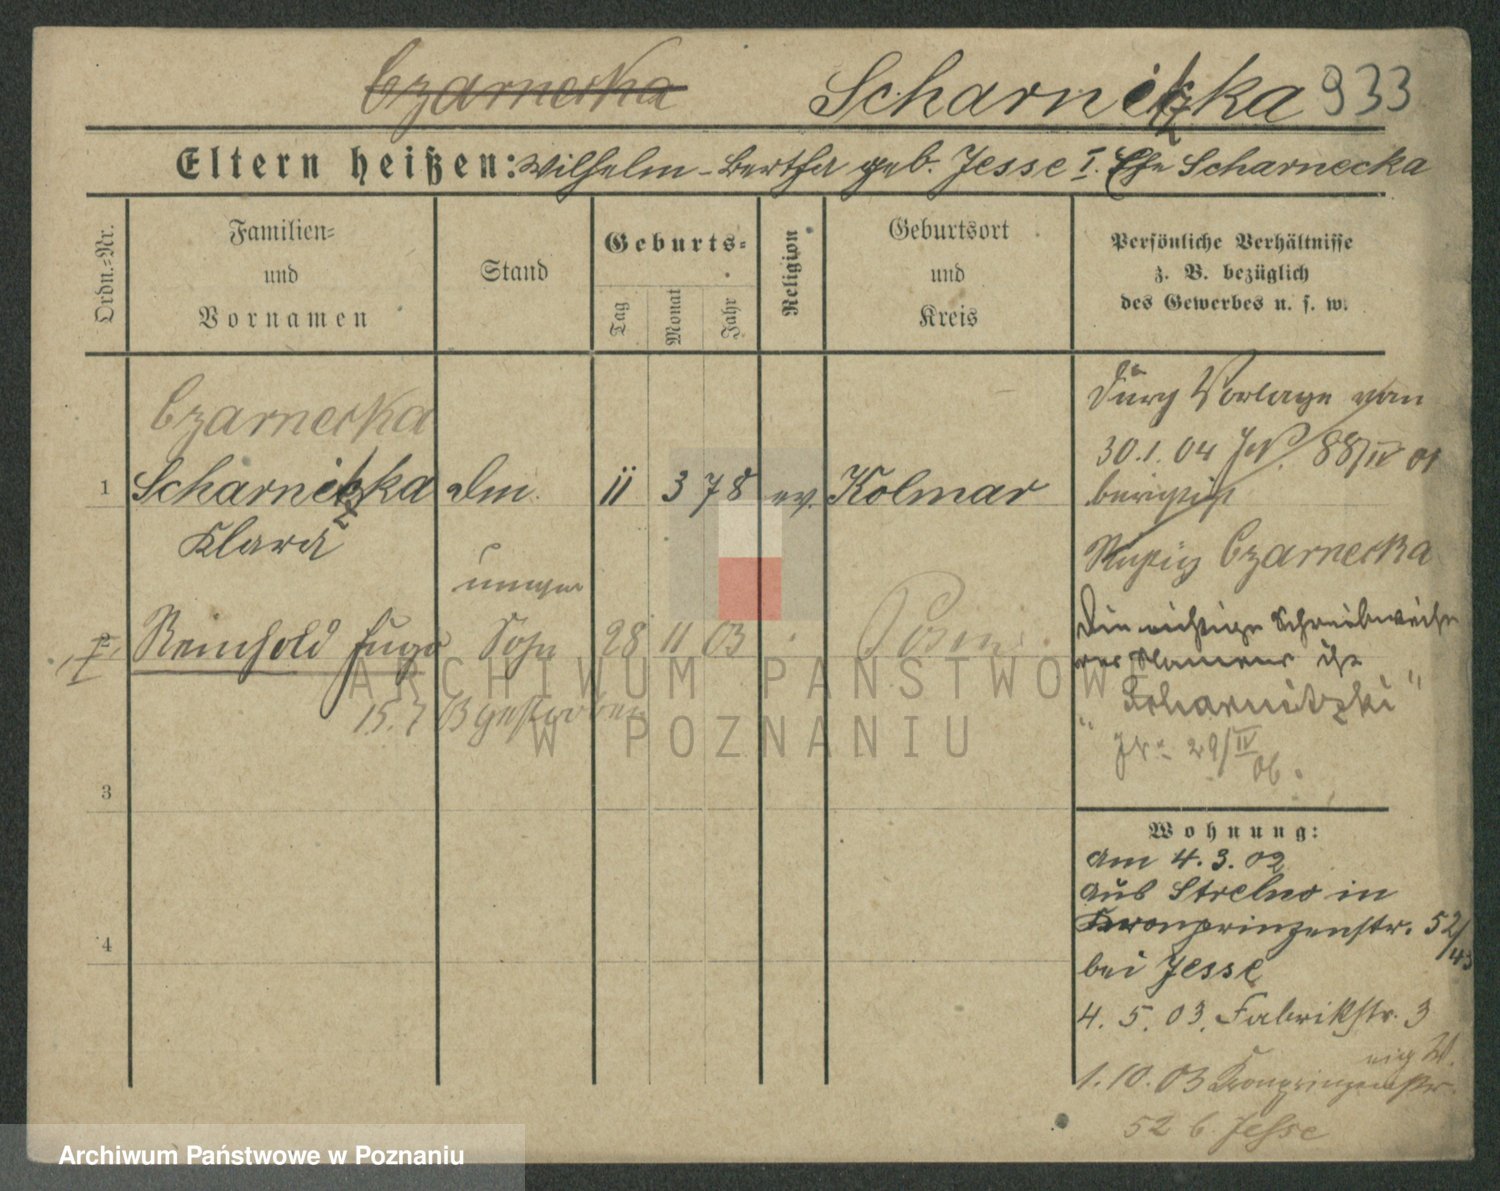 Czarnecka Scharnitzka 933
Eltern heißen: Wilhelm - Bertha geb. Jesse I. Ehe Scharnecka
Ordn.-Nr.
Familien-
und
Vornamen
Stand
Geburts-
Tag
Monat
Jahr
Religion
Geburtsort
und
Kreis
Persönliche Verhältnisse
z. B. bezüglich
des Gewerbes u. s. w.
Czarnecka
1 Scharnitzka 11 3 78 ev. Kolmar
Klara
unehel
Reinhold Hugo Sohn 28 11 03 Posen
15.7 03 gestorben
3
4
Durch Vorlage vom
30.1.04 88/IV 01
berichtigt
Richtig Czarnecka
Die richtige Schreibweise
des Namens ist
"Scharnitzki"
29/IV 06.
Wohnung:
am 4.3.02
aus Strelno in
Kronprinzenstr. 52/43
bei Jesse
4.5.03. Fabrikstr. 3
1.10.03 Kronprinzenstr.
52 b. Jesse
ARCHIWUM PAŃSTWOWE
W POZNANIU
Archiwum Państwowe w Poznaniu